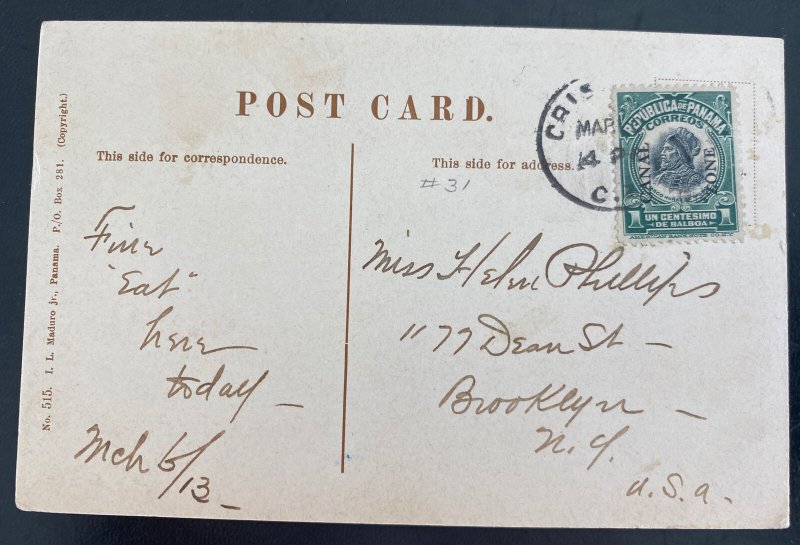 POST CARD.
This side for correspondence.
This side for address.
#31
No. 515. I. L. Maduro jr., Panama. P./O. Box 281. (Copyright.)
CRIS
MAR
C.
REPUBLICA DE PANAMA
CORREOS
CANAL ZONE
1 UN CENTESIMO 1
DE BALBOA
AMERICAN BANK NOTE CO. N.Y.
Fine
"Eat"
here
today —
Mch 6/13
Miss Helen Phillips
1177 Dean St —
Brooklyn —
N.Y.
U.S.A.